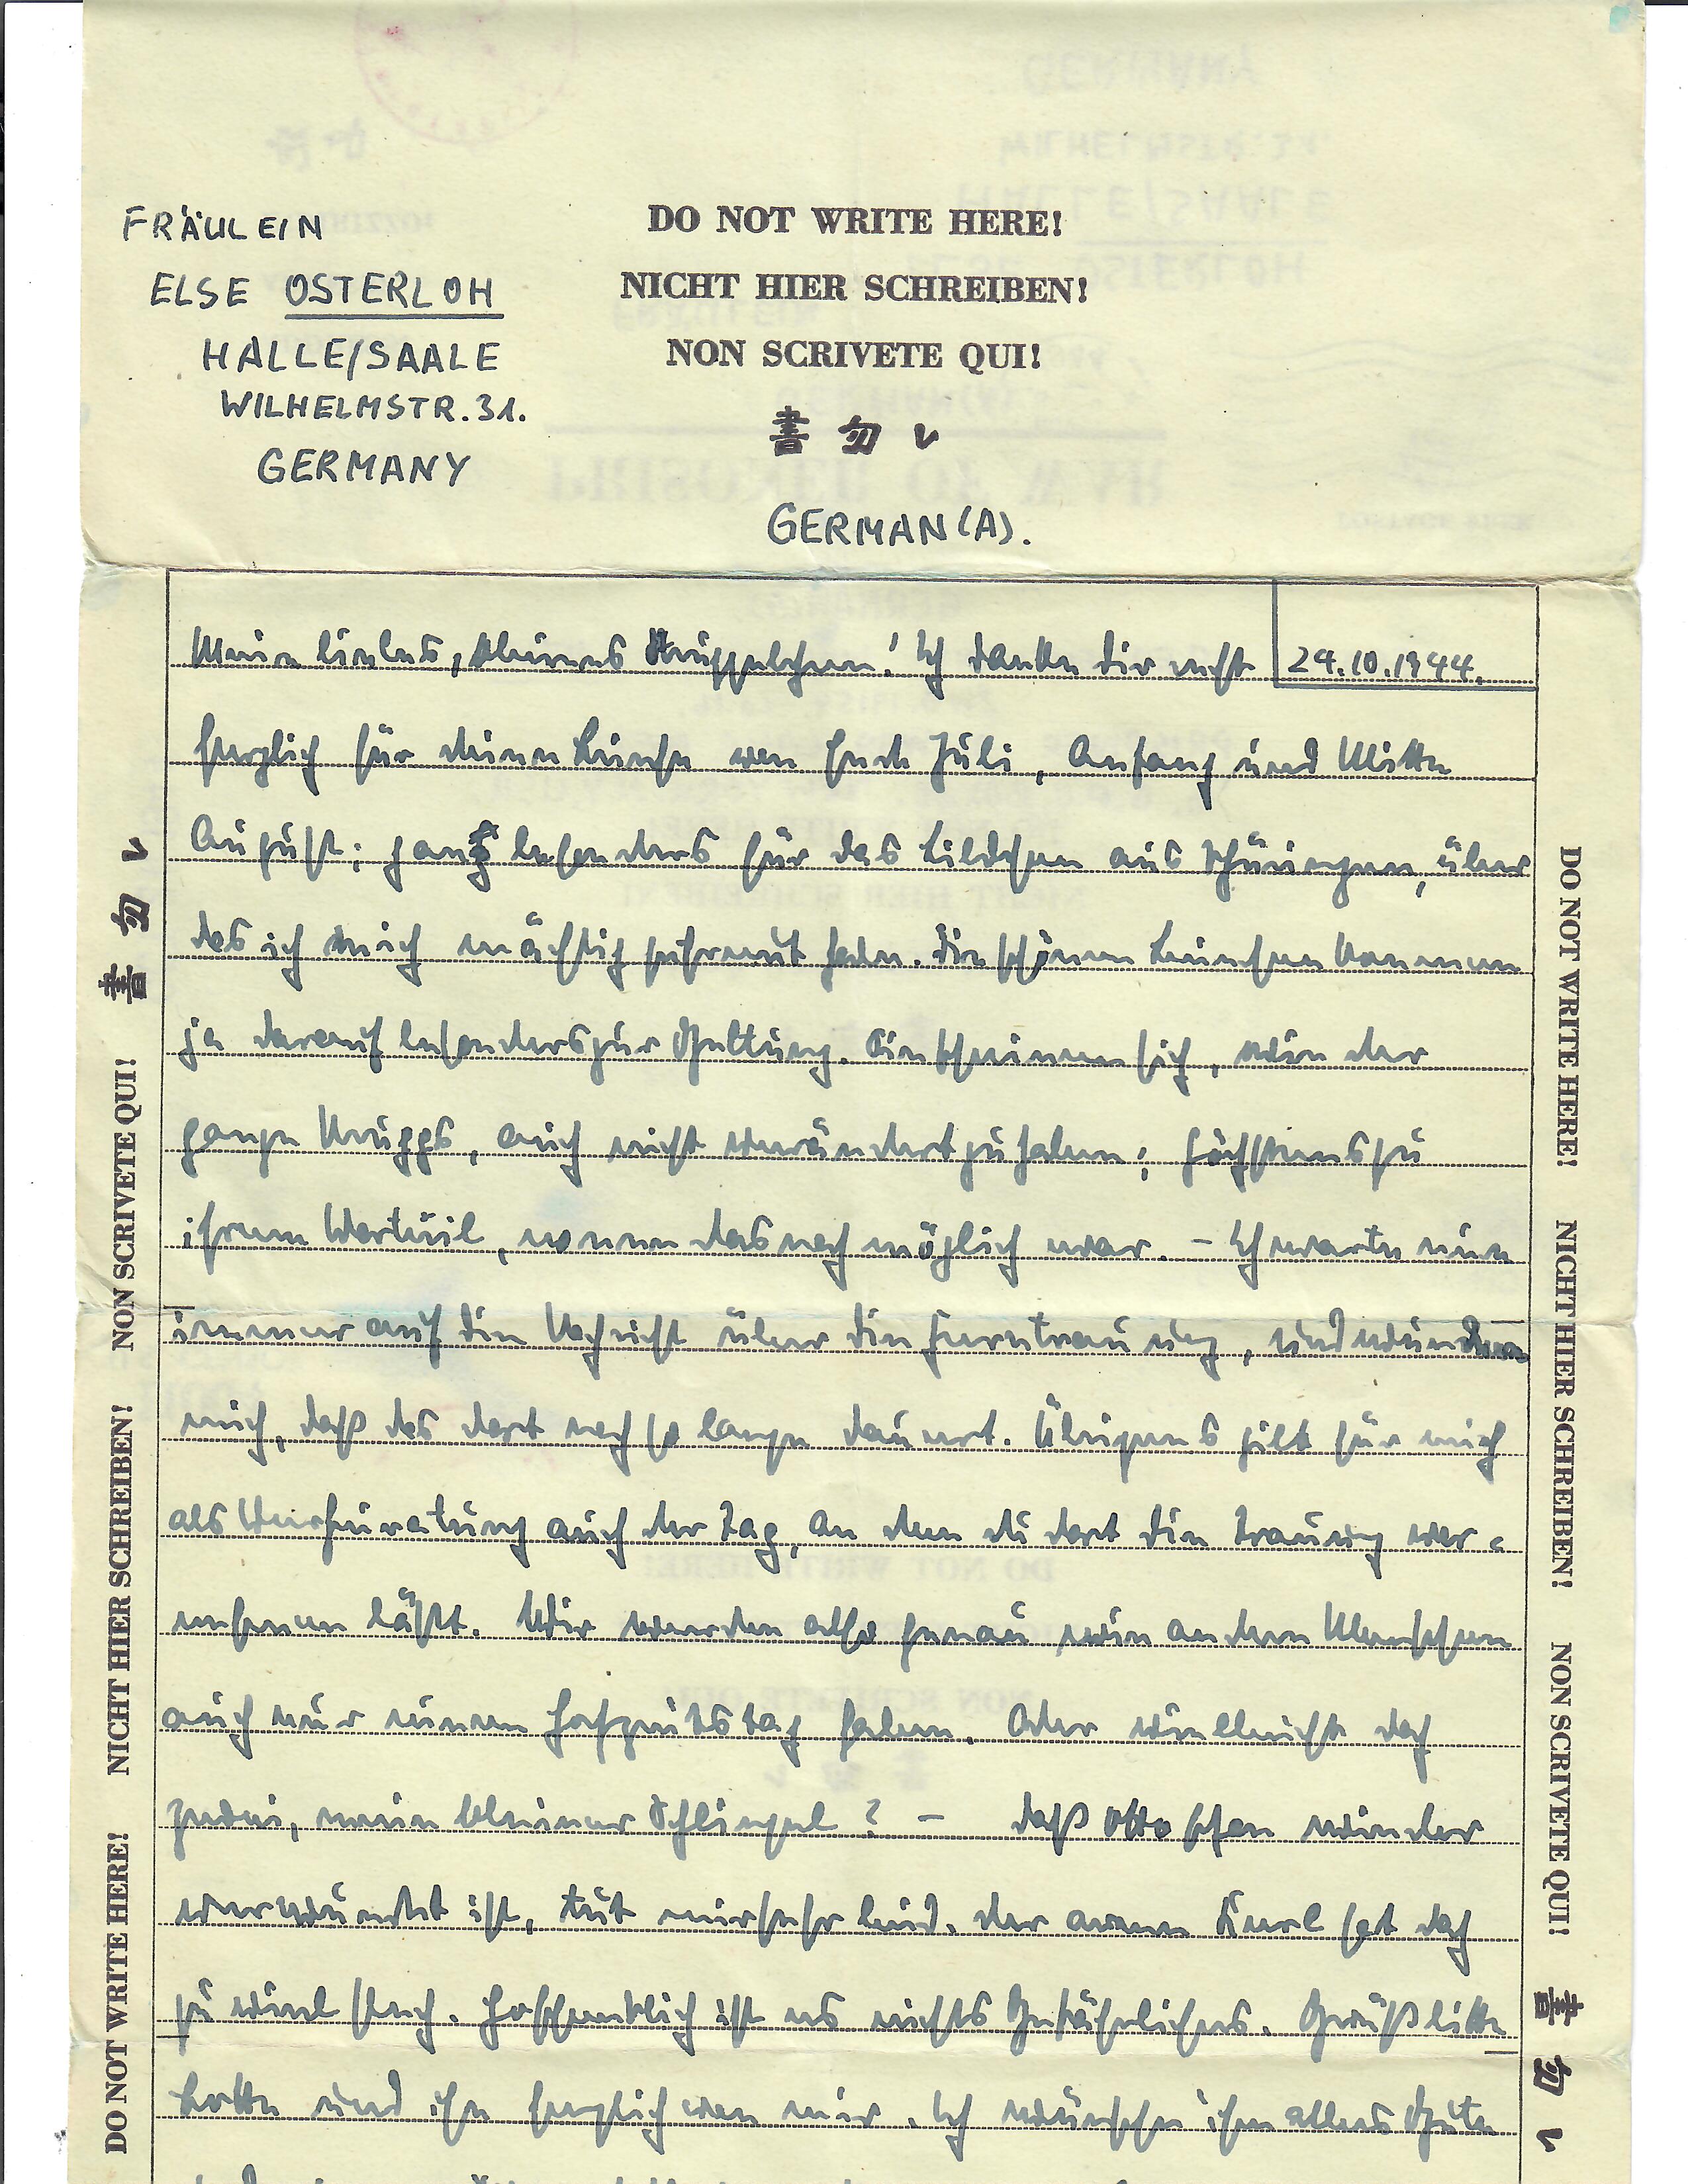 FRÄULEIN
ELSE OSTERLOH
HALLE/SAALE
WILHELMSTR. 31.
GERMANY
DO NOT WRITE HERE!
NICHT HIER SCHREIBEN!
NON SCRIVETE QUI!
書 勿 レ
GERMAN (A).
24.10.1944.
Mein liebes, kleines! Ich danke dir recht
herzlich für deine Briefe von Ende Juli, Anfang und Mitte
August; ganz besonders für das Bildchen aus Thüringen, über
das ich mich mächtig gefreut habe. Die schönen Beinchen kommen
ja darauf besonders zur Geltung. Sie scheinen sich, wie der
ganze, auch nicht verändert zu haben; höchstens zu
ihrem Vorteil, wenn das noch möglich war. – Ich warte nun
immer auf die Nachricht über die Ferntrauung, und wundere
mich, daß das dort noch so lange dauert. Übrigens gilt für mich
als Verheiratung auch der Tag, an dem du dort die Trauung vor-
nehmen läßt. Wir werden also genau wie andere Menschen
auch nur einen Hochzeitstag haben. Oder vielleicht doch
zwei, mein kleiner Schlingel? – Daß Otto schon wieder
verwundet ist, tut mir sehr leid. Der arme Kerl hat doch
zu viel Pech. Hoffentlich ist es nichts Gefährliches. Grüß bitte
Lotte und ihn herzlich von mir. Ich wünsche ihm alles Gute
DO NOT WRITE HERE! NICHT HIER SCHREIBEN! NON SCRIVETE QUI! 書 勿 レ
DO NOT WRITE HERE! NICHT HIER SCHREIBEN! NON SCRIVETE QUI! 書 勿 レ